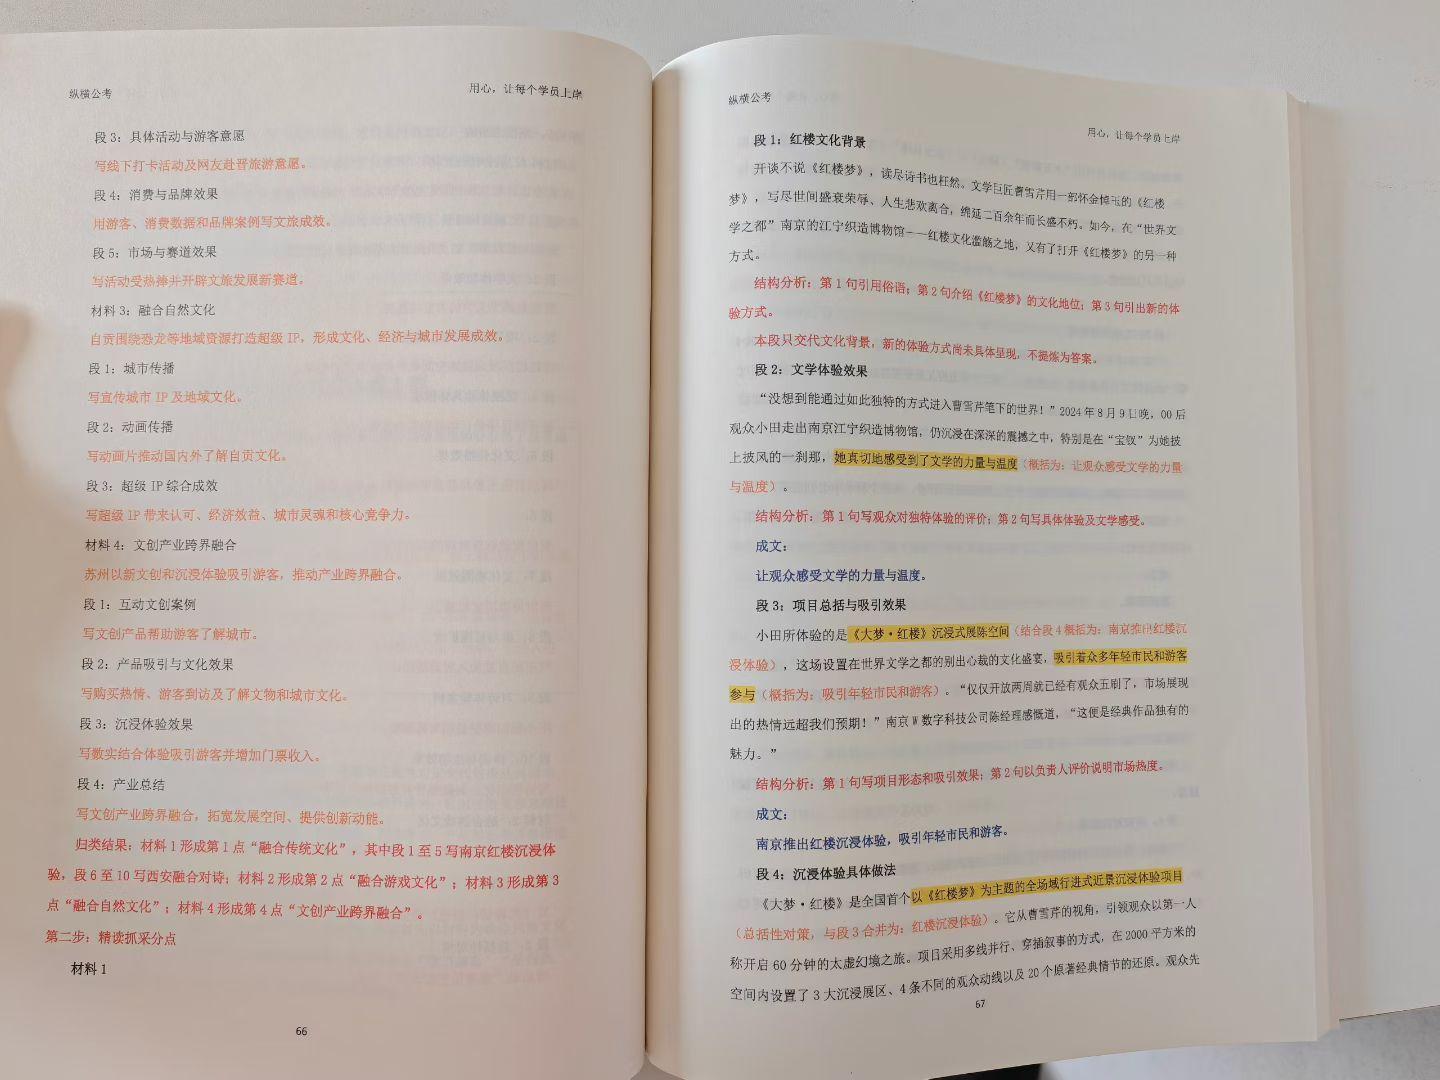 纵横公考
用心，让每个学员上岸
段 3：具体活动与游客意愿
写线下打卡活动及网友赴晋旅游意愿。
段 4：消费与品牌效果
用游客、消费数据和品牌案例写文旅成效。
段 5：市场与赛道效果
写活动受热捧并开辟文旅发展新赛道。
材料 3：融合自然文化
自贡围绕恐龙等地域资源打造超级 IP，形成文化、经济与城市发展成效。
段 1：城市传播
写宣传城市 IP 及地域文化。
段 2：动画传播
写动画片推动国内外了解自贡文化。
段 3：超级 IP 综合成效
写超级 IP 带来认可、经济效益、城市灵魂和核心竞争力。
材料 4：文创产业跨界融合
苏州以新文创和沉浸体验吸引游客，推动产业跨界融合。
段 1：互动文创案例
写文创产品帮助游客了解城市。
段 2：产品吸引与文化效果
写购买热情、游客到访及了解文物和城市文化。
段 3：沉浸体验效果
写数实结合体验吸引游客并增加门票收入。
段 4：产业总结
写文创产业跨界融合，拓宽发展空间、提供创新动能。
归类结果：材料 1 形成第 1 点“融合传统文化”，其中段 1 至 5 写南京红楼沉浸体
验，段 6 至 10 写西安融合对诗；材料 2 形成第 2 点“融合游戏文化”；材料 3 形成第 3
点“融合自然文化”；材料 4 形成第 4 点“文创产业跨界融合”。
第二步：精读抓采分点
材料 1
66
纵横公考
用心，让每个学员上岸
段 1：红楼文化背景
开谈不说《红楼梦》，读尽诗书也枉然。文学巨匠曹雪芹用一部怀金悼玉的《红楼
梦》，写尽世间盛衰荣辱、人生悲欢离合，绵延二百余年而长盛不朽。如今，在“世界文
学之都”南京的江宁织造博物馆——红楼文化滥觞之地，又有了打开《红楼梦》的另一种
方式。
结构分析：第 1 句引用俗语；第 2 句介绍《红楼梦》的文化地位；第 3 句引出新的体
验方式。
本段只交代文化背景，新的体验方式尚未具体呈现，不提炼为答案。
段 2：文学体验效果
“没想到能通过如此独特的方式进入曹雪芹笔下的世界！”2024 年 8 月 9 日晚，00 后
观众小田走出南京江宁织造博物馆，仍沉浸在深深的震撼之中，特别是在“宝钗”为她披
上披风的一刹那，她真切地感受到了文学的力量与温度（概括为：让观众感受文学的力量
与温度）。
结构分析：第 1 句写观众对独特体验的评价；第 2 句写具体体验及文学感受。
成文：
让观众感受文学的力量与温度。
段 3：项目总括与吸引效果
小田所体验的是《大梦·红楼》沉浸式展陈空间（结合段 4 概括为：南京推出红楼沉
浸体验），这场设置在世界文学之都的别出心裁的文化盛宴，吸引着众多年轻市民和游客
参与（概括为：吸引年轻市民和游客）。“仅仅开放两周就已经有观众五刷了，市场展现
出的热情远超我们预期！”南京 W 数字科技公司陈经理感慨道，“这便是经典作品独有的
魅力。”
结构分析：第 1 句写项目形态和吸引效果；第 2 句以负责人评价说明市场热度。
成文：
南京推出红楼沉浸体验，吸引年轻市民和游客。
段 4：沉浸体验具体做法
《大梦·红楼》是全国首个以《红楼梦》为主题的全场域行进式近景沉浸体验项目
（总括性对策，与段 3 合并为：红楼沉浸体验）。它从曹雪芹的视角，引领观众以第一人
称开启 60 分钟的太虚幻境之旅。项目采用多线并行、穿插叙事的方式，在 2000 平方米的
空间内设置了 3 大沉浸展区、4 条不同的观众动线以及 20 个原著经典情节的还原。观众先
67